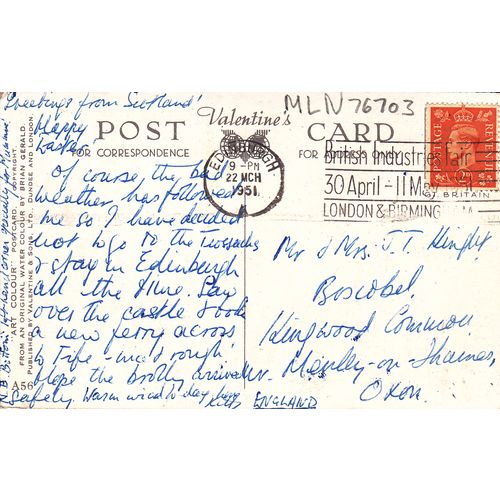 Greetings from Scotland!
Happy
Easter.
Of course, the bad
weather has followed
me so I have decided
not to go to the Trossachs
& stay in Edinburgh
all the time. Saw
over the castle & took
a new ferry across
to Fife - and rough!
Hope the brolly arrived
safely. Warm wind to-day
N.B. Bottom left-hand corner specially for
A56
"ART COLOUR" POSTCARD. COPYRIGHT.
FROM AN ORIGINAL WATER COLOUR BY BRIAN GERALD.
PUBLISHED BY VALENTINE & SONS, LTD., DUNDEE AND LONDON.
Valentine's
POST CARD
FOR CORRESPONDENCE
FOR ADDRESS ONLY
MLN76703
EDINBURGH
9-PM
22 MCH
1951
A
British Industries Fair
30 April - 11 May
LONDON & BIRMING
GT. BRITAIN
Mr & Mrs J.T. Knight
Boscobel
Kingwood Common
Nr. Henley-on-Thames,
Oxon.
ENGLAND